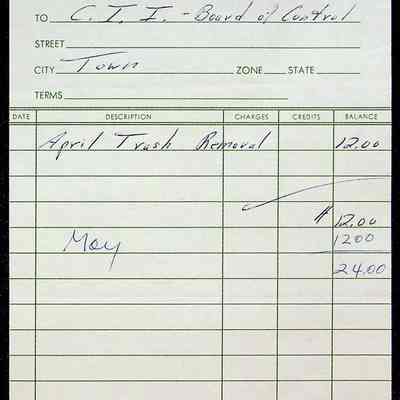 TO C. I. I. - Board of Control
STREET
CITY Town ZONE STATE
TERMS
DATE DESCRIPTION CHARGES CREDITS BALANCE
April Trash Removal 12.00
# 12.00
May 1200
24.00